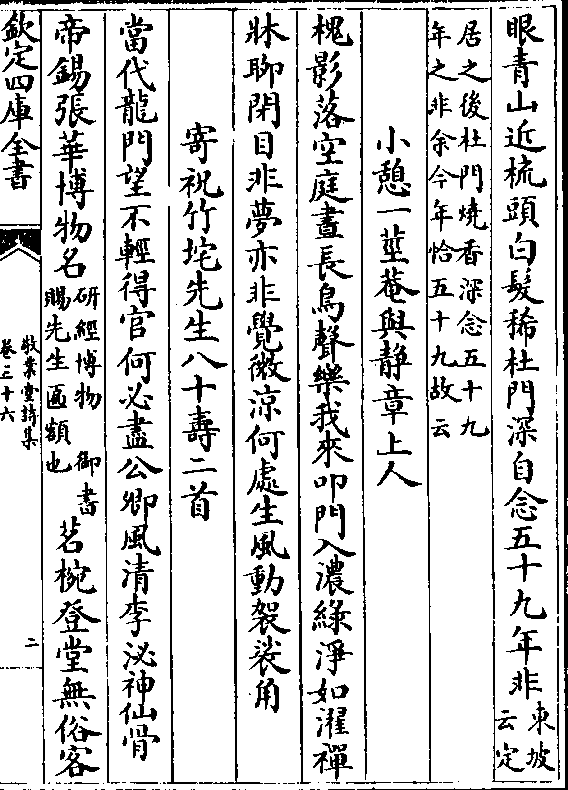 眼青山近梳頭白髮稀杜門深自念五十九年非東坡云定
居之後杜門燒香深念五十九年之非余今年恰五十九故云
小憩一莖菴與靜章上人
槐影落空庭晝長鳥聲樂我來叩門入濃綠淨如濯禪
牀聊閉目非夢亦非覺微涼何處生風動袈裟角
寄祝竹垞先生八十壽二首
當代龍門望不輕得官何必盡公卿風清李泌神仙骨
帝錫張華博物名研經博物御書賜先生匾額也茗椀登堂無俗客
欽定四庫全書
敬業堂詩集
卷三十六
二